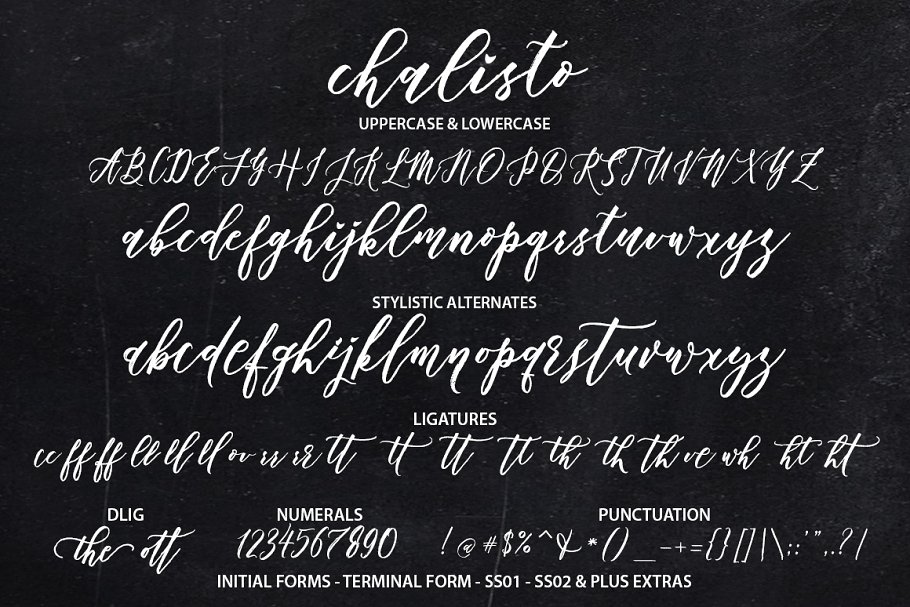 chalisto
UPPERCASE & LOWERCASE
ABCDEFGHIJKLMNOPQRSTUVWXYZ
abcdefghijklmnopqrstuvwxyz
STYLISTIC ALTERNATES
abcdefghijklmnopqrstuvwxyz
LIGATURES
cc ff ff ll ll ll ov rr sr tt tt tt tt th th th ve wh ht ht
DLIG NUMERALS PUNCTUATION
the ott 1234567890 ! @ # $ % ^ & * ( ) _ - + = { } [ ] | \ ; : ' " , . ? /
INITIAL FORMS - TERMINAL FORM - SS01 - SS02 & PLUS EXTRAS